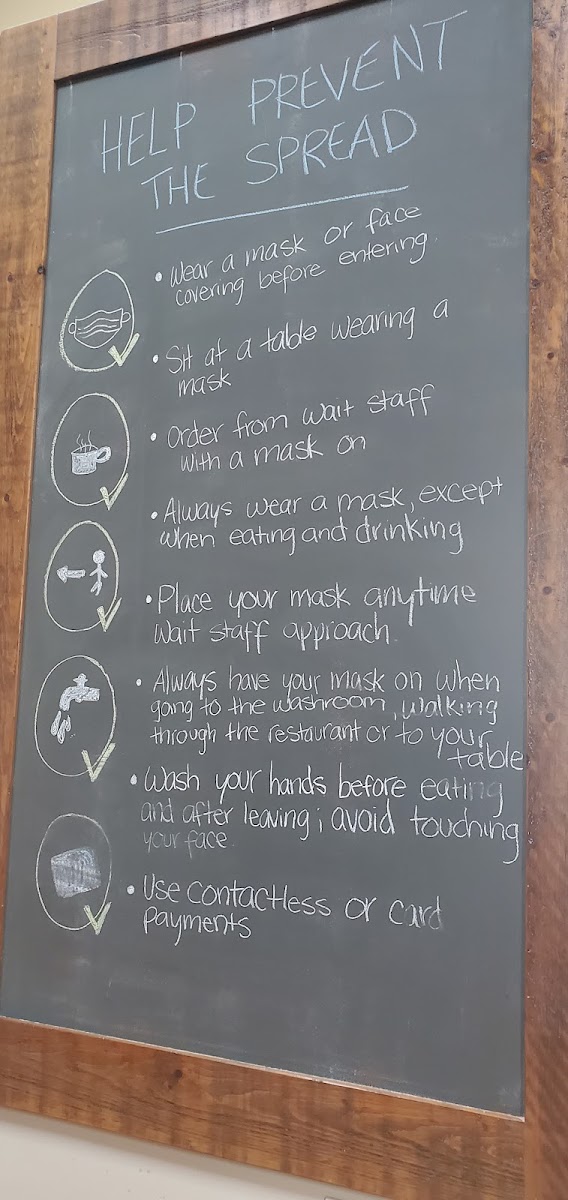 HELP PREVENT
THE SPREAD
• Wear a mask or face
covering before entering.
• Sit at a table wearing a
mask
• Order from wait staff
with a mask on
• Always wear a mask, except
when eating and drinking
• Place your mask anytime
wait staff approach.
• Always have your mask on when
going to the washroom, walking
through the restaurant or to your
table
• Wash your hands before eating
and after leaving; avoid touching
your face.
• Use contactless or card
payments